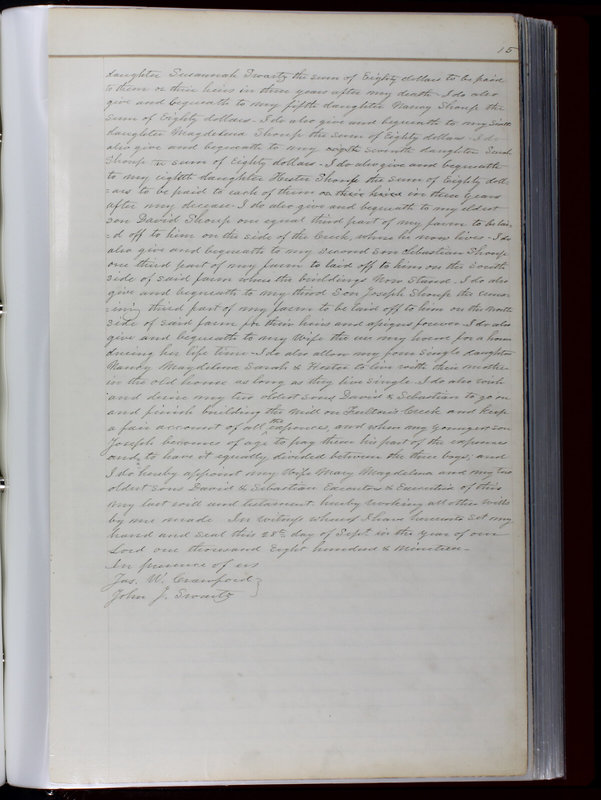 15
daughter Susannah Swartz the sum of Eighty dollars to be paid
to them or their heirs in three years after my death. I do also
give and bequeath to my fifth daughter Nancy Shoup the
sum of Eighty dollars. I do also give and bequeath to my Sixth
daughter Magdelena Shoup the sum of Eighty dollars. I do
also give and bequeath to my eighth Seventh daughter Sarah
Shoup the sum of Eighty dollars. I do also give and bequeath
to my eighth daughter Hester Shoup the sum of Eighty doll-
=ars to be paid to each of them or their heirs in three years
after my decease. I do also give and bequeath to my eldest
son David Shoup one equal third part of my farm to be lai-
=d off to him on the side of the Creek where he now lives. I do
also give and bequeath to my second son Sebastian Shoup
one third part of my farm to laid off to him on the South
side of said farm where the buildings Now Stand. I do also
give and bequeath to my third Son Joseph Shoup the rema-
=ining third part of my farm to be laid off to him on the North
side of said farm for their heirs and assigns forever. I do also
give and bequeath to my Wife the use my home for a home
during her life time. I do also allow my four Single daughters
Nancy Magdelena Sarah & Hester to live with their mother
in the old home as long as they live single. I do also wish
and desire my two oldest sons David & Sebastian to go on
and finish building the Mill on Creek and keep
a fair account of all the expences, and when my younger son
Joseph becomes of age to pay them his part of the expences
and to have it equally divided between the three boys, and
I do hereby appoint my Wife Mary Magdelena and my two
oldest sons David & Sebastian Executors & Executrix of this
my last will and testament, hereby revoking all other wills
by me made. In witness whereof I have hereunto set my
hand and seal this 28th day of Sept in the year of our
Lord one thousand Eight hundred & Nineteen.
In presence of us
Jas. W. Crawford
John J. Swartz